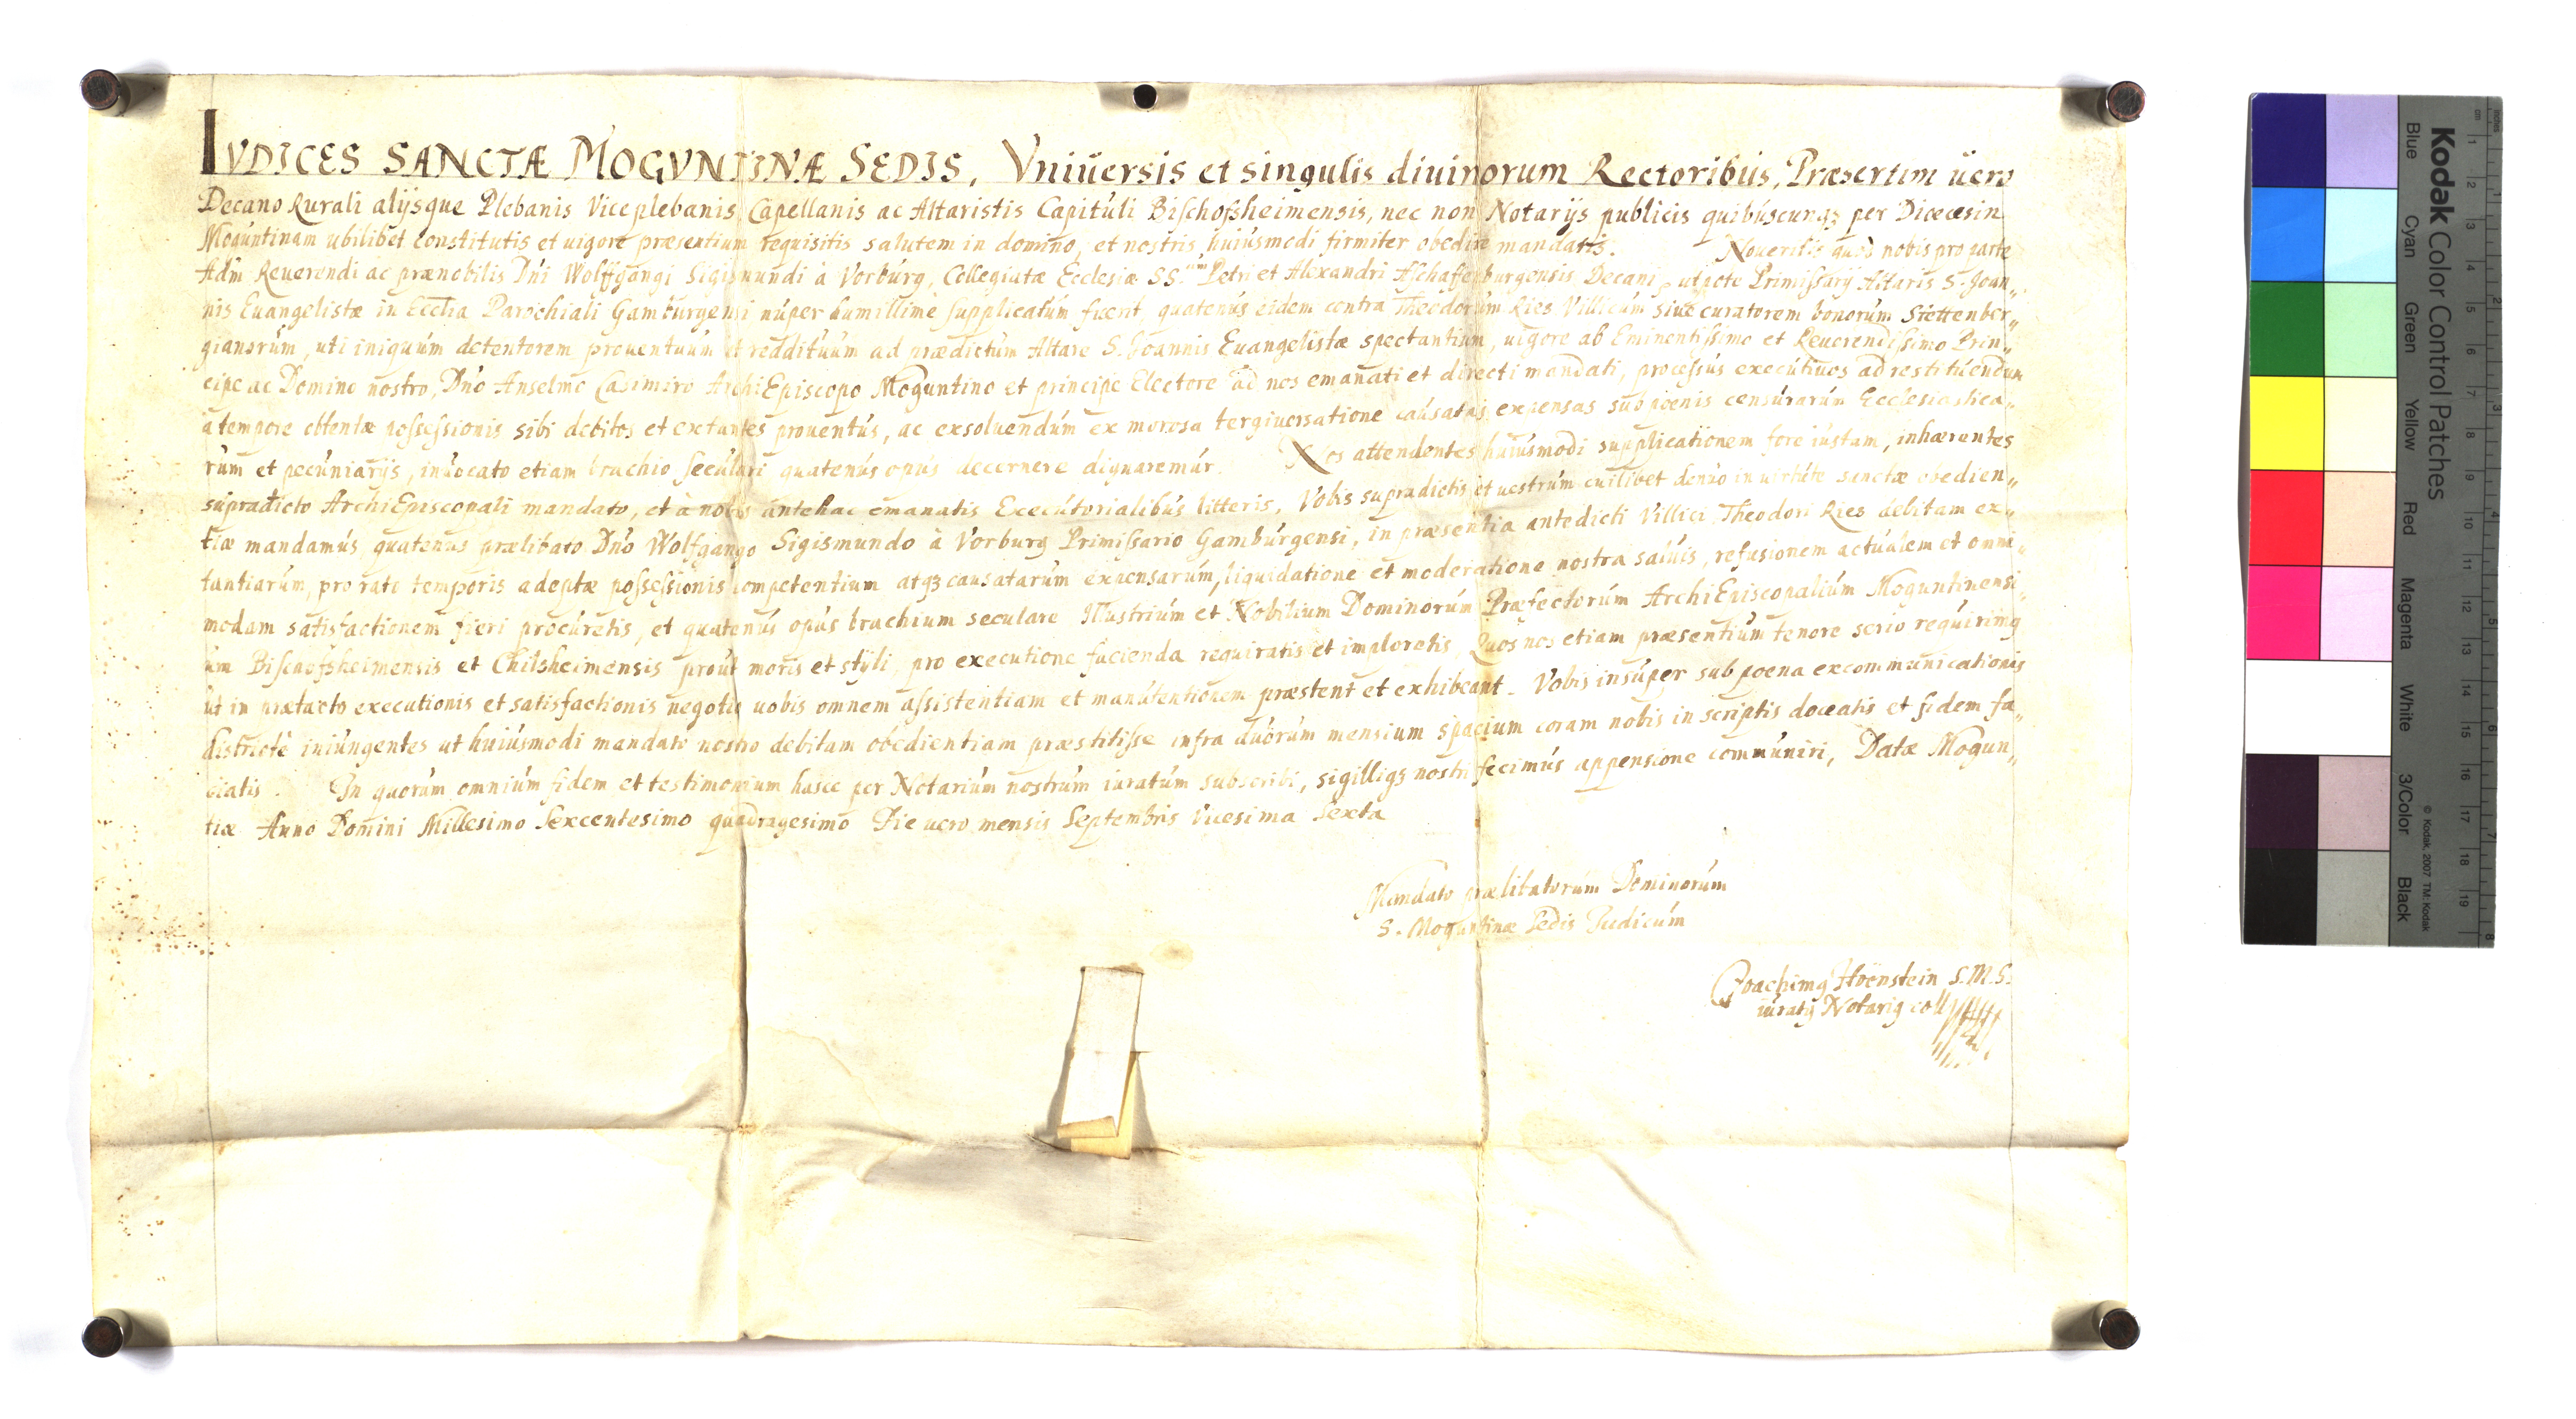 IVDICES SANCTÆ MOGVNTINÆ SEDIS, Vniuersis et singulis diuinorum Rectoribus, Præsertim uero
Decano Rurali alijsque Plebanis Viceplebanis Capellanis ac Altaristis Capituli Bischofsheimensis, nec non Notarijs publicis quibuscunqz per Dicecesin
Moguntinam ubilibet constitutis et uigore præsentium requisitis salutem in domino, et nostris huiusmodi firmiter obedire mandatis. Noueritis quod nobis pro parte
Adm Reuerendi ac prænobilis Dni Wolffgangi Sigismundi à Vorburg, Collegiatæ Ecclesiæ SS. Petri et Alexandri Aschaffenburgensis Decani, utpote Primissarij Altaris S. Joan„
nis Euangelistæ in Ecclia Parochiali Gamburgensi nuper humillimè supplicatum fuerit, quatenus eidem contra Theodorum Ries Villicum siue curatorem bonorum Stettenber„
gianorum, uti iniquum detentorem prouentuum et reddituum ad prædictum Altare S. Joannis Euangelistæ spectantium, uigore ab Eminentissimo et Reuerendissimo Prin„
cipe ac Domino nostro, Dno Anselmo Casimiro ArchiEpiscopo Moguntino et principe Electore ad nos emanati et directi mandati, processus executiuos ad restituendum
à tempore obtentæ possessionis sibi debitos et extantes prouentus, ac exsoluendum ex morosa tergiuersatione causatas expensas sub poenis censurarum Ecclesiastica„
rum et pecuniarijs, inuocato etiam brachio seculari quatenus opus decernere dignaremur. Nos attendentes huiusmodi supplicationem fore iustam, inhærentes
supradicto ArchiEpiscopali mandato, et à nobis antehac emanatis Executorialibus litteris, Vobis supradictis et uestrum cuilibet denuo in uirtute sanctæ obedien„
tiæ mandamus, quatenus prælibato Dno Wolfgango Sigismundo à Vorburg Primissario Gamburgensi, in præsentia antedicti Villici Theodori Ries debitam ex„
tantiarum, pro rato temporis adeptæ possessionis competentium atqz causatarum expensarum, liquidatione et moderatione nostra saluis, refusionem actualem et omni„
modam satisfactionem fieri procuretis, et quatenus opus brachium seculare Illustrium et Nobilium Dominorum Præfectorum ArchiEpiscopalium Moguntinensi„
um Bischofsheimensis et Chilsheimensis prout moris et styli, pro executione facienda requiratis et imploretis, Quos nos etiam præsentium tenore serio requirimg
ut in prætacto executionis et satisfactionis negotio uobis omnem assistentiam et manutentionem præstent et exhibeant. Vobis insuper sub poena excommunicationis
districtè iniungentes ut huiusmodi mandato nostro debitam obedientiam præstitisse infra duorum mensium spacium coram nobis in scriptis doceatis et fidem fa„
ciatis. In quorum omnium fidem et testimonium hasce per Notarium nostrum iuratum subscribi, sigilliqz nostri fecimus appensione communiri, Datæ Mogun„
tiæ Anno Domini Millesimo Sexcentesimo quadragesimo Die uero mensis Septembris Vicesima Sexta
Mandato prælibatorum Dominorum
S. Moguntinæ Sedis Judicum
Joachimg Hoenstein S.M.S.
iuratg Notarig
Kodak Color Control Patches
Blue Cyan Green Yellow Red Magenta White 3/Color Black
© Kodak, 2007 TM: Kodak
cm 1 2 3 4 5 6 7 8 9 10 11 12 13 14 15 16 17 18 19
inches 1 2 3 4 5 6 7 8